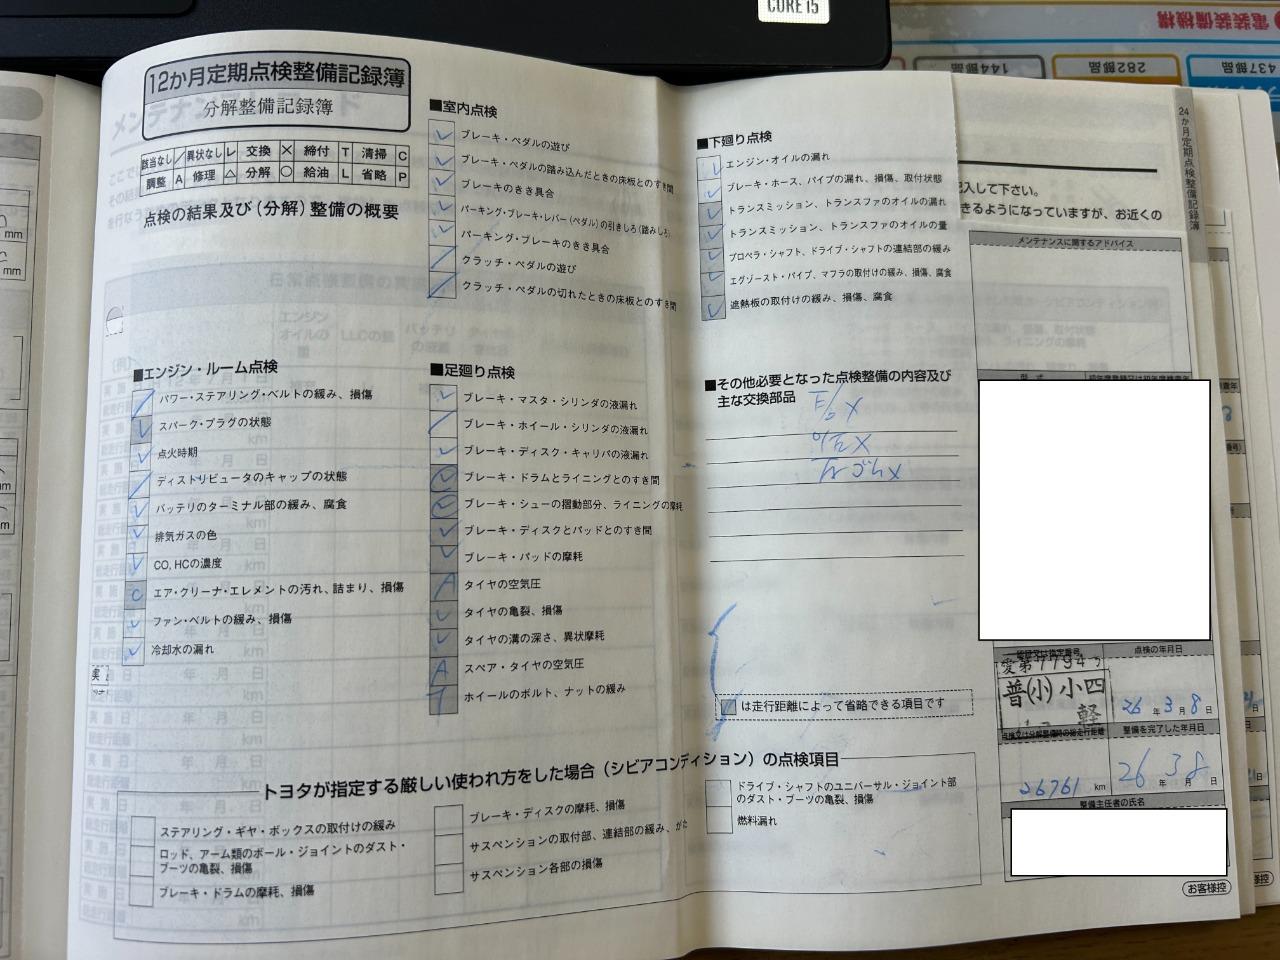 CORE i5
電装装備機構
437部品
282部品
144部品
12か月定期点検整備記録簿
分解整備記録簿
該当なし / 異状なし レ 交換 × 締付 T 清掃 C
調整 A 修理 △ 分解 ○ 給油 L 省略 P
点検の結果及び(分解)整備の概要
■室内点検
ブレーキ・ペダルの遊び
ブレーキ・ペダルの踏み込んだときの床板とのすき間
ブレーキのきき具合
パーキング・ブレーキ・レバー(ペダル)の引きしろ(踏みしろ)
パーキング・ブレーキのきき具合
クラッチ・ペダルの遊び
クラッチ・ペダルの切れたときの床板とのすき間
■エンジン・ルーム点検
パワー・ステアリング・ベルトの緩み、損傷
スパーク・プラグの状態
点火時期
ディストリビュータのキャップの状態
バッテリのターミナル部の緩み、腐食
排気ガスの色
CO, HCの濃度
C エア・クリーナ・エレメントの汚れ、詰まり、損傷
ファン・ベルトの緩み、損傷
冷却水の漏れ
■足廻り点検
ブレーキ・マスタ・シリンダの液漏れ
ブレーキ・ホイール・シリンダの液漏れ
ブレーキ・ディスク・キャリパの液漏れ
ブレーキ・ドラムとライニングとのすき間
ブレーキ・シューの摺動部分、ライニングの摩耗
ブレーキ・ディスクとパッドとのすき間
ブレーキ・パッドの摩耗
A タイヤの空気圧
タイヤの亀裂、損傷
タイヤの溝の深さ、異状摩耗
A スペア・タイヤの空気圧
T ホイールのボルト、ナットの緩み
■下廻り点検
エンジン・オイルの漏れ
ブレーキ・ホース、パイプの漏れ、損傷、取付状態
トランスミッション、トランスファのオイルの漏れ
トランスミッション、トランスファのオイルの量
プロペラ・シャフト、ドライブ・シャフトの連結部の緩み
エグゾースト・パイプ、マフラの取付けの緩み、損傷、腐食
遮熱板の取付けの緩み、損傷、腐食
■その他必要となった点検整備の内容及び
主な交換部品
は走行距離によって省略できる項目です
トヨタが指定する厳しい使われ方をした場合(シビアコンディション)の点検項目
ステアリング・ギヤ・ボックスの取付けの緩み
ロッド、アーム類のボール・ジョイントのダスト・
ブーツの亀裂、損傷
ブレーキ・ドラムの摩耗、損傷
ブレーキ・ディスクの摩耗、損傷
サスペンションの取付部、連結部の緩み、がた
サスペンション各部の損傷
ドライブ・シャフトのユニバーサル・ジョイント部
のダスト・ブーツの亀裂、損傷
燃料漏れ
24か月定期点検整備記録簿
記入して下さい。
きるようになっていますが、お近くの
メンテナンスに関するアドバイス
型式
点検の年月日
愛第7794号
普(小)小四
軽
26年3月8日
整備を完了した年月日
26年3月8日
26761 km
整備主任者の氏名
お客様控
mm
mm